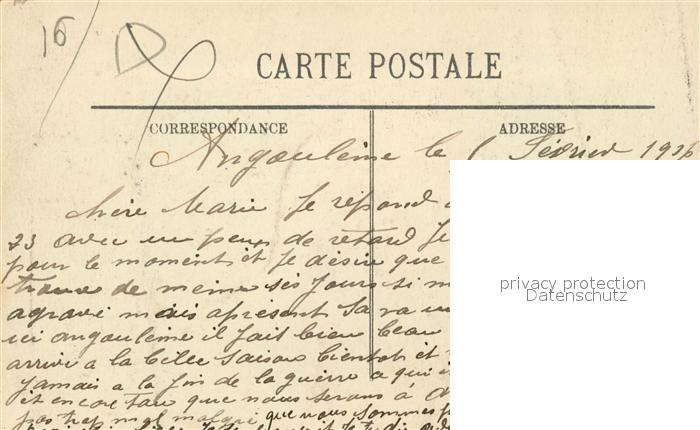 16
CARTE POSTALE
CORRESPONDANCE
ADRESSE
Angoulème le 1 Février 1916
chère Marie Je répond
23 avec un peux de retard Je
pour le moment et Je désire que
trouve de meme ses Jours si m
agravé mais aprésent sa va
ici angoulème il fait bien beau
arrivé a la belle saison bientot et
Jamais a la fin de la guerre a qui
et encore tan que nous serons à
pas trop mal malgré que nous sommes
privacy protection
Datenschutz